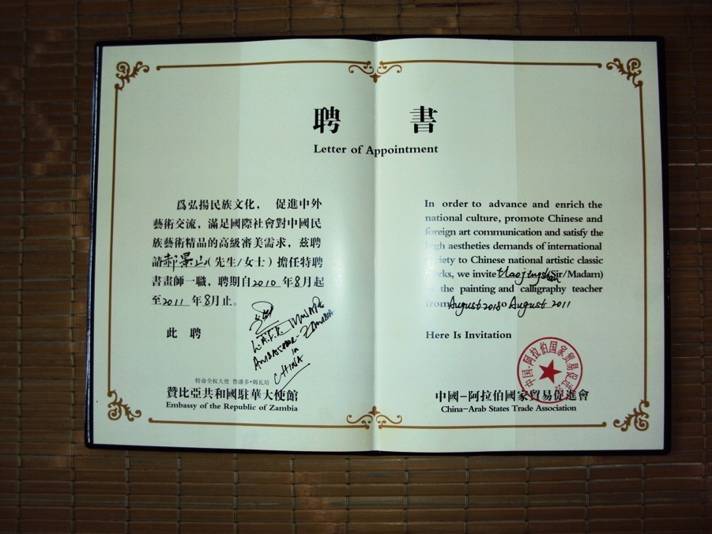 聘 書
Letter of Appointment
爲弘揚民族文化， 促進中外
藝術交流，滿足國際社會對中國民
族藝術精品的高級審美需求，兹聘
請郝景山（先生/女士）擔任特聘
書畫師一職，聘期自2010 年8月起
至2011 年8月止。
此 聘
L.A.F.K.
AMBASSADOR-ZAMBIA
in
CHINA
贊比亞共和國駐華大使館
Embassy of the Republic of Zambia
In order to advance and enrich the
national culture, promote Chinese and
foreign art communication and satisfy the
high aestheties demands of international
society to Chinese national artistic classic
works, we invite Haojingshan (Sir/Madam)
as the painting and calligraphy teacher
from August 2010 to August 2011
Here Is Invitation
中國-阿拉伯國家貿易促進會
中國-阿拉伯國家貿易促進會
China-Arab States Trade Association